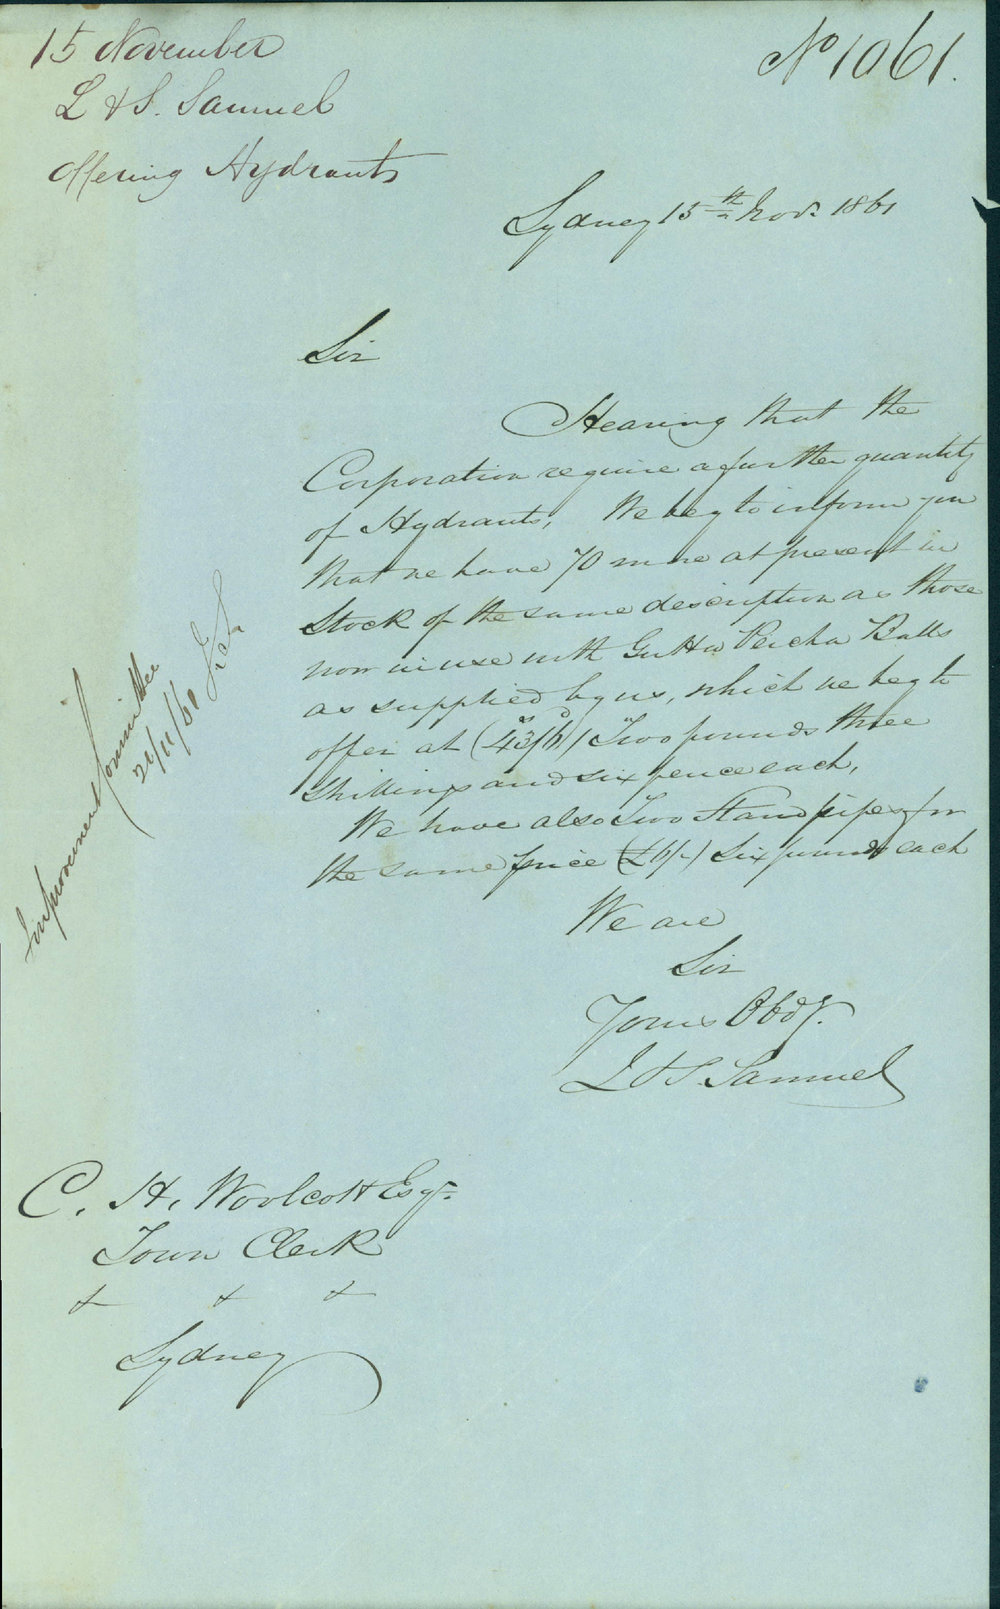 15 November
L & S. Samuel
Offering Hydrants
No 1061.
Sydney 15th Novr. 1861
Sir
Hearing that the
Corporation require a further quantity
of Hydrants, We beg to inform you
that we have 70 more at present in
Stock of the same description as those
now in use with Gutta Percha Balls
as supplied by us, which we beg to
offer at (43s/6d) Two pounds three
shillings and six pence each,
We have also Two Stand pipes for
the same price (£6/-) Six pounds each
We are
Sir
Yours Obdt.
L & S. Samuel
Improvement Committee
C. H. Woolcott Esqr.
Town Clerk
& & &
Sydney